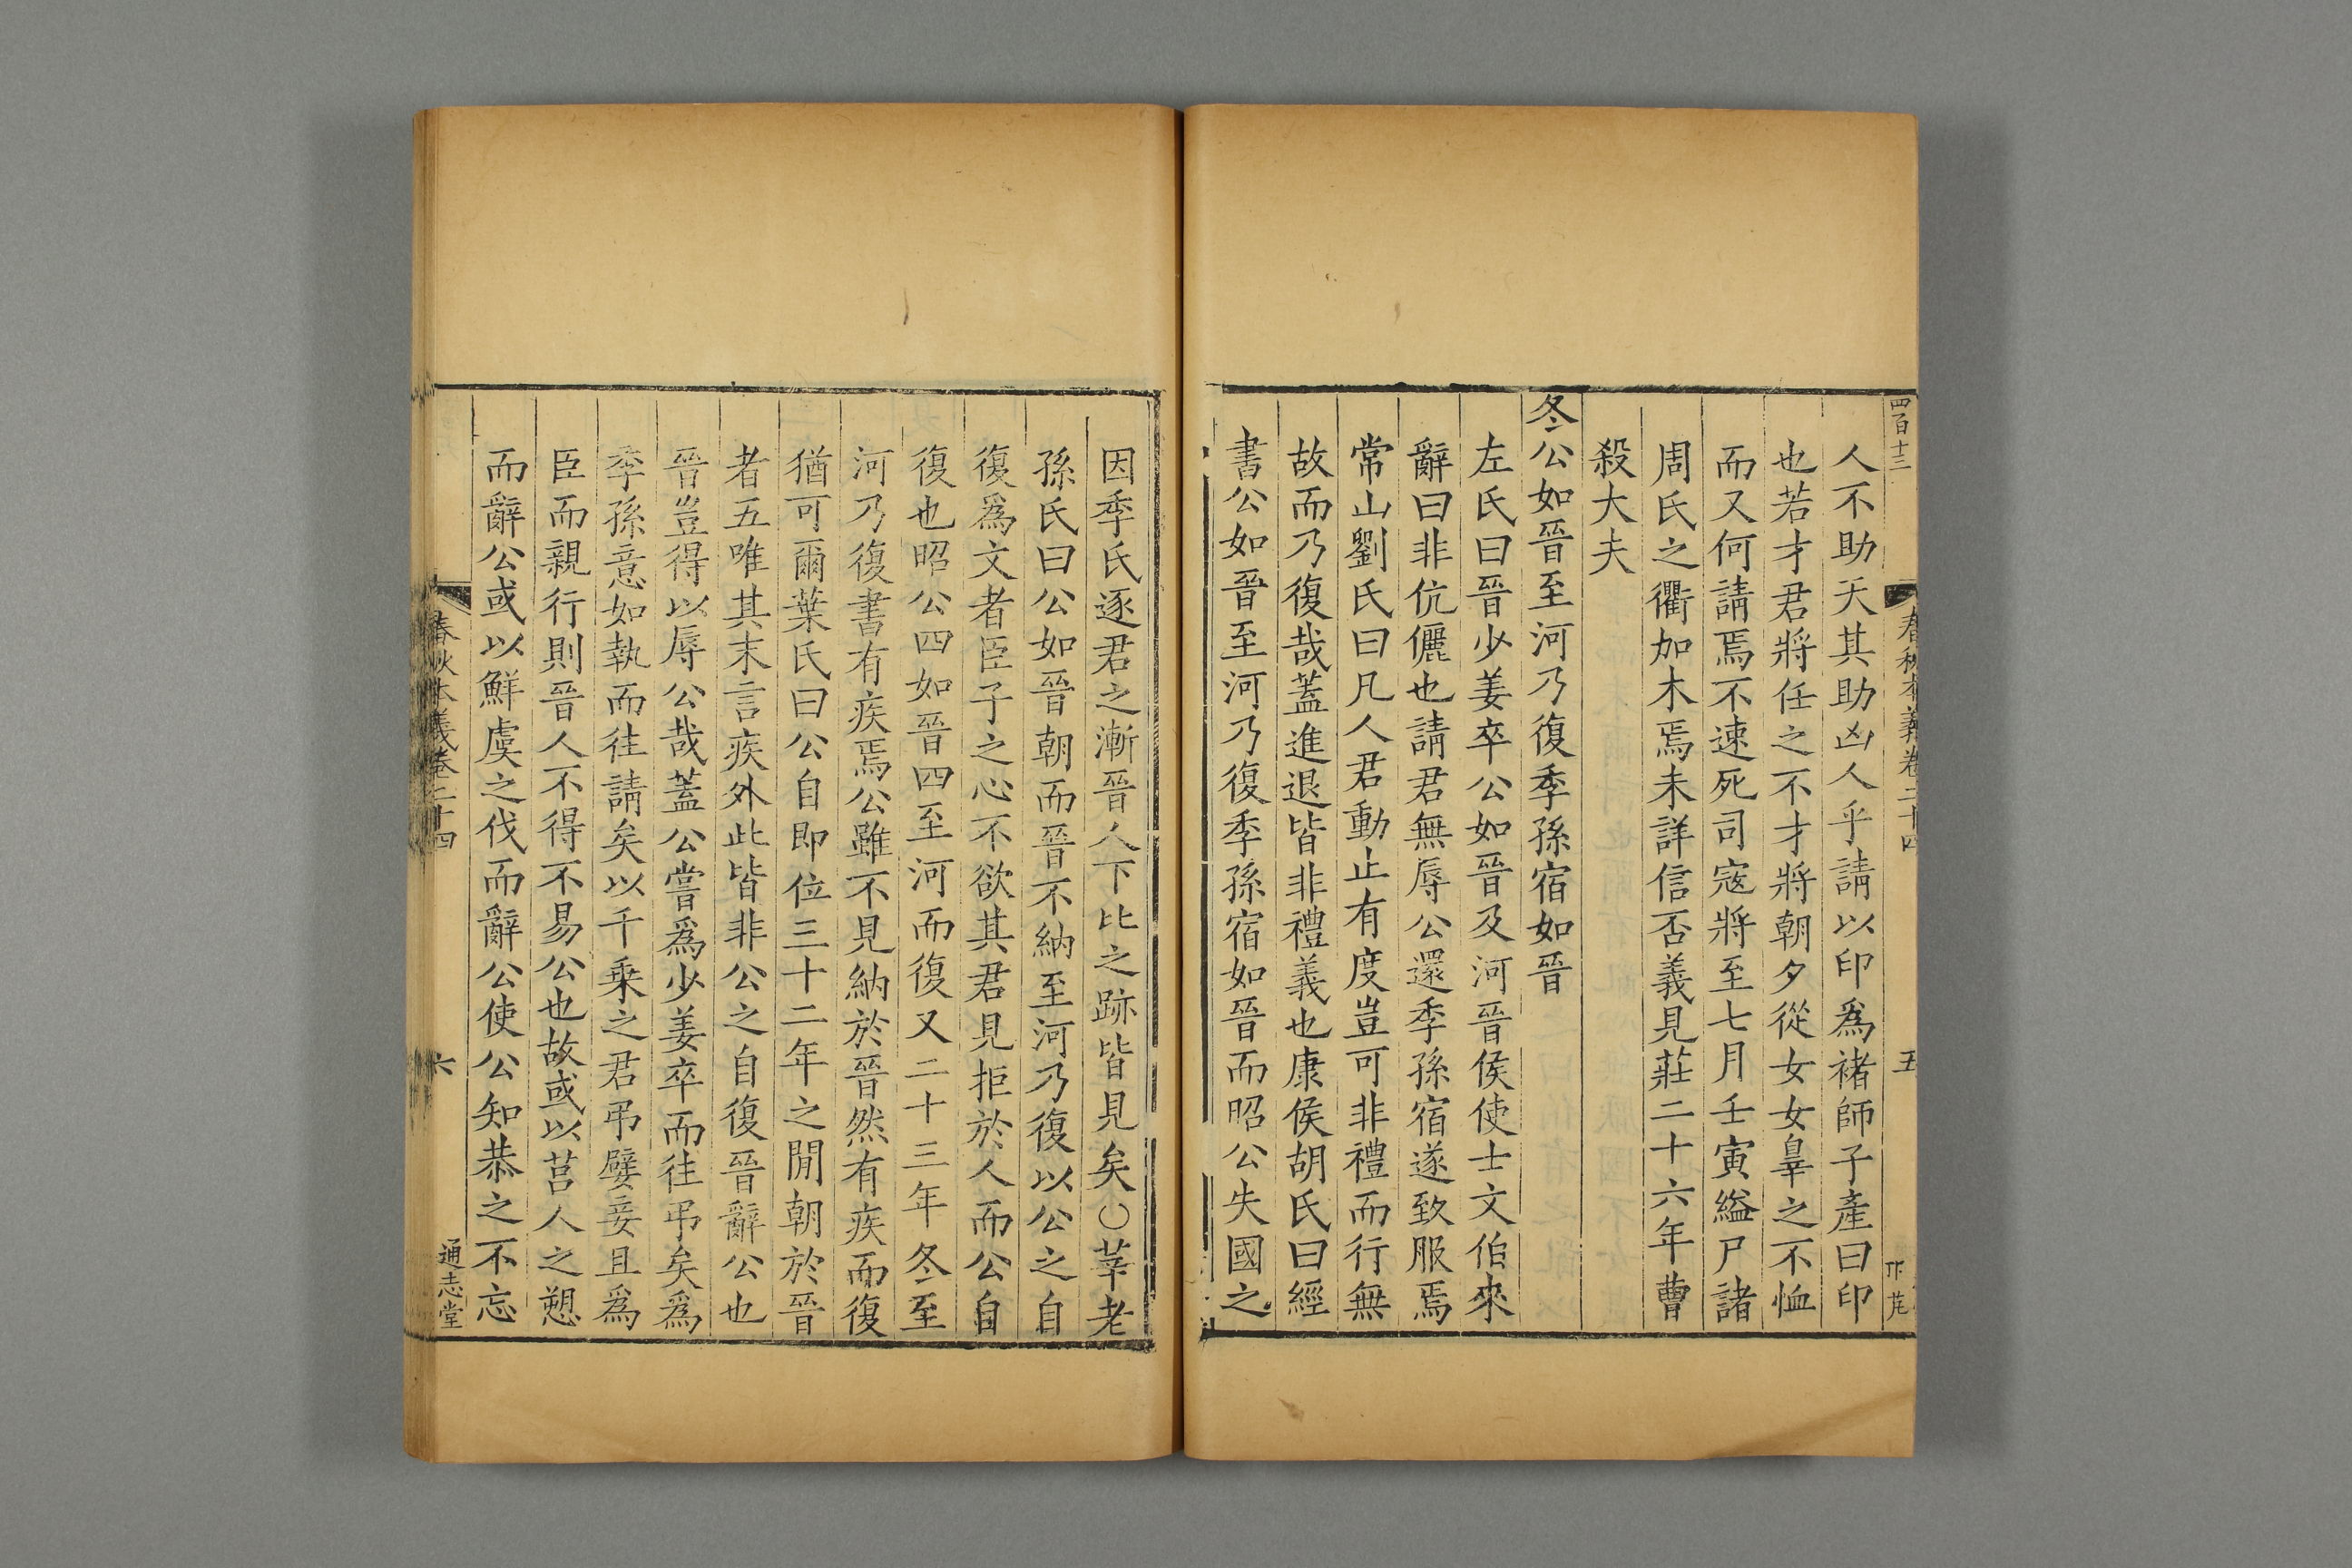 四百十三
春秋本義卷二十四
五
人不助天其助凶人乎請以印爲褚師子產曰印
也若才君將任之不才將朝夕從女女辠之不恤
而又何請焉不速死司寇將至七月壬寅縊尸諸
周氏之衢加木焉未詳信否義見莊二十六年曹
殺大夫
冬公如晉至河乃復季孫宿如晉
左氏曰晉少姜卒公如晉及河晉侯使士文伯來
辭曰非伉儷也請君無辱公還季孫宿遂致服焉
常山劉氏曰凡人君動止有度豈可非禮而行無
故而乃復哉蓋進退皆非禮義也康侯胡氏曰經
書公如晉至河乃復季孫宿如晉而昭公失國之
因季氏逐君之漸晉人下比之跡皆見矣○莘老
孫氏曰公如晉朝而晉不納至河乃復以公之自
復爲文者臣子之心不欲其君見拒於人而公自
復也昭公四如晉四至河而復又二十三年冬至
河乃復書有疾焉公雖不見納於晉然有疾而復
猶可爾葉氏曰公自即位三十二年之閒朝於晉
者五唯其末言疾外此皆非公之自復晉辭公也
晉豈得以辱公哉蓋公嘗爲少姜卒而往弔矣爲
季孫意如執而往請矣以千乗之君弔嬖妾且爲
臣而親行則晉人不得不易公也故或以莒人之愬
而辭公或以鮮虞之伐而辭公使公知恭之不忘
春秋本義卷二十四
六
通志堂